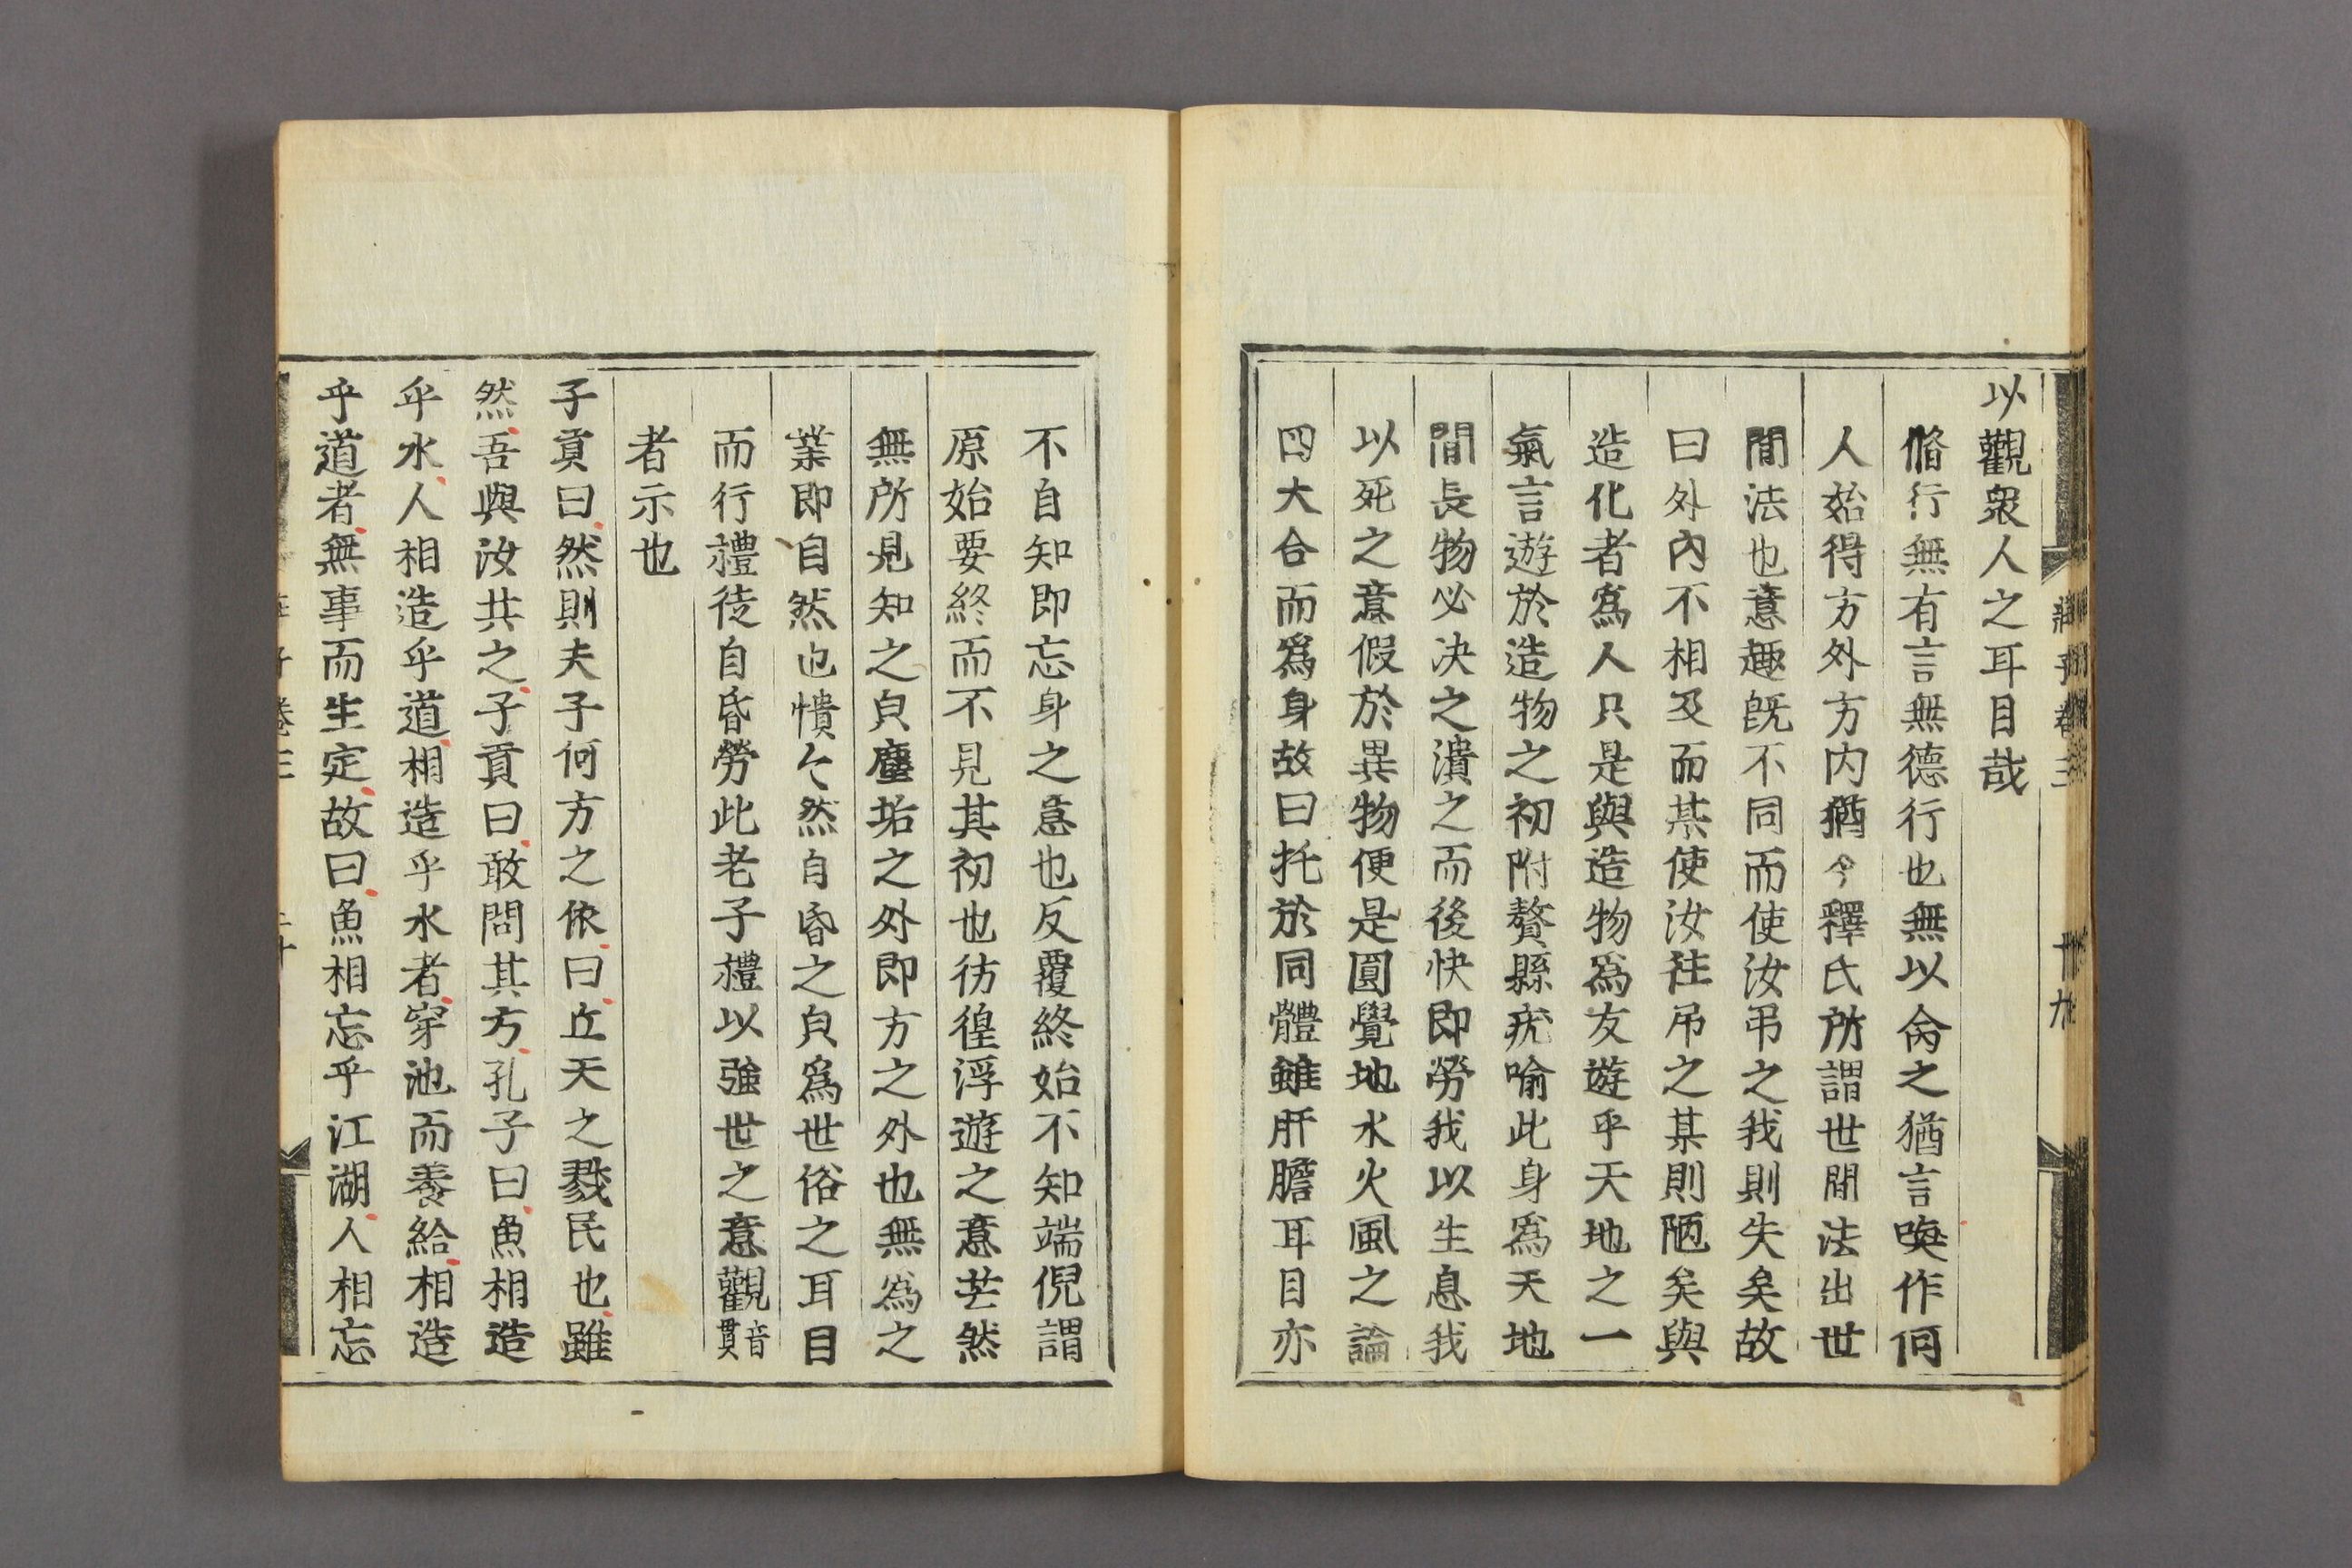 莊子卷三
十九
以觀衆人之耳目哉
脩行無有言無德行也無以命之猶言喚作何
人始得方外方内猶今釋氏所謂世間法出世
間法也意趣旣不同而使汝弔之我則失矣故
曰外內不相及而某使汝徃吊之某則陋矣與
造化者爲人只是與造物爲友遊乎天地之一
氣言遊於造物之初附贅縣疣喻此身爲天地
間長物必决之潰之而後快即勞我以生息我
以死之意假於異物便是圓覺地水火風之論
四大合而爲身故曰托於同體雖肝膽耳目亦
不自知即忘身之意也反覆終始不知端倪謂
原始要終而不見其初也彷徨浮遊之意芒然
無所見知之皃塵垢之外即方之外也無為之
業即自然也憒々然自昏之皃爲世俗之耳目
而行禮徒自昏勞此老子禮以強世之意觀音貫
者示也
子貢曰然則夫子何方之依曰丘天之戮民也雖
然吾與汝共之子貢曰敢問其方孔子曰魚相造
乎水人相造乎道相造乎水者穿池而養給相造
乎道者無事而生定故曰魚相忘乎江湖人相忘